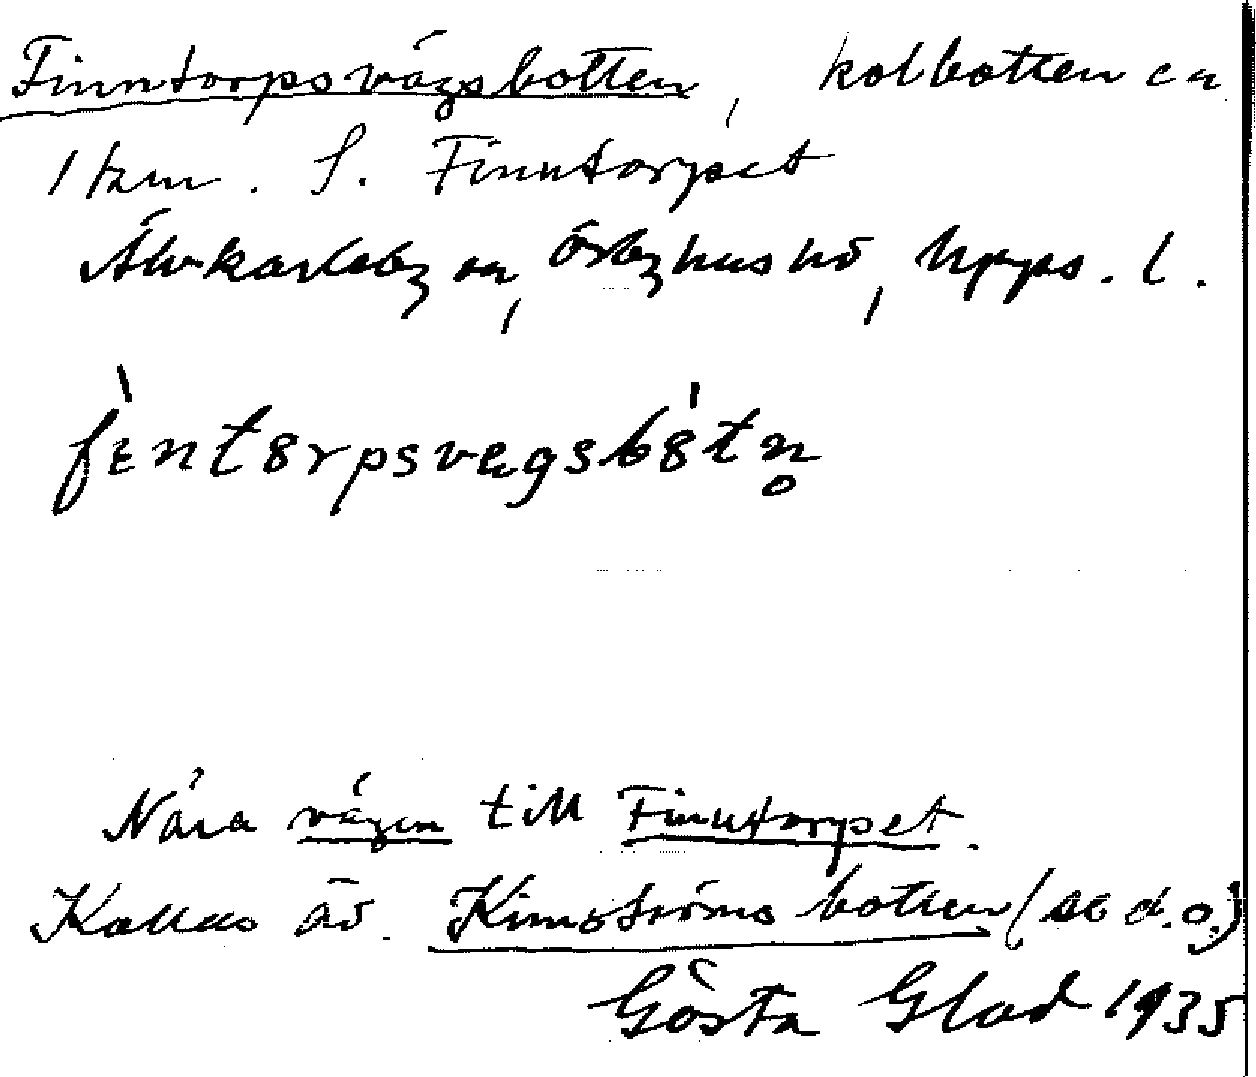 Finntorpsvägsbotten, kolbotten ca
1 km. S. Finntorpet
Älvkarleby sn, Örbyhus hd, Upps. l.
fìntorpsvegsbótn̥
Nära vägen till Finntorpet.
Kallas äv. Kimströms botten (se d.o.)
Gösta Glad 1935